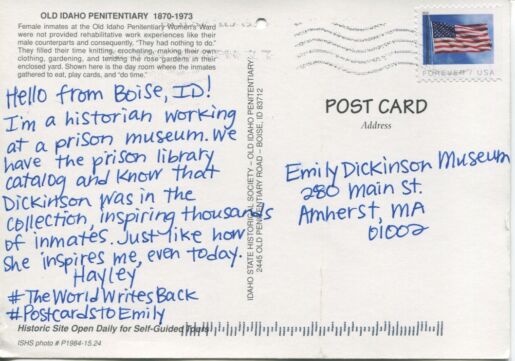 OLD IDAHO PENITENTIARY 1870-1973
Female inmates at the Old Idaho Penitentiary Women's Ward
were not provided rehabilitative work experiences like their
male counterparts and consequently, "They had nothing to do."
They filled their time knitting, crocheting, making their own
clothing, gardening, and tending the rose gardens in their
enclosed yard. Shown here is the day room where the inmates
gathered to eat, play cards, and "do time."
Hello from Boise, ID!
I'm a historian working
at a prison museum. We
have the prison library
catalog and know that
Dickinson was in the
collection, inspiring thousands
of inmates. Just like how
she inspires me, even today.
Hayley
#TheWorldWritesBack
#PostcardstoEmily
Historic Site Open Daily for Self-Guided Tours
ISHS photo # P1984-15.24
IDAHO STATE HISTORICAL SOCIETY – OLD IDAHO PENITENTIARY
2445 OLD PENITENTIARY ROAD – BOISE, ID 83712
FOREVER / USA
POST CARD
Address
Emily Dickinson Museum
280 Main St.
Amherst, MA
01002